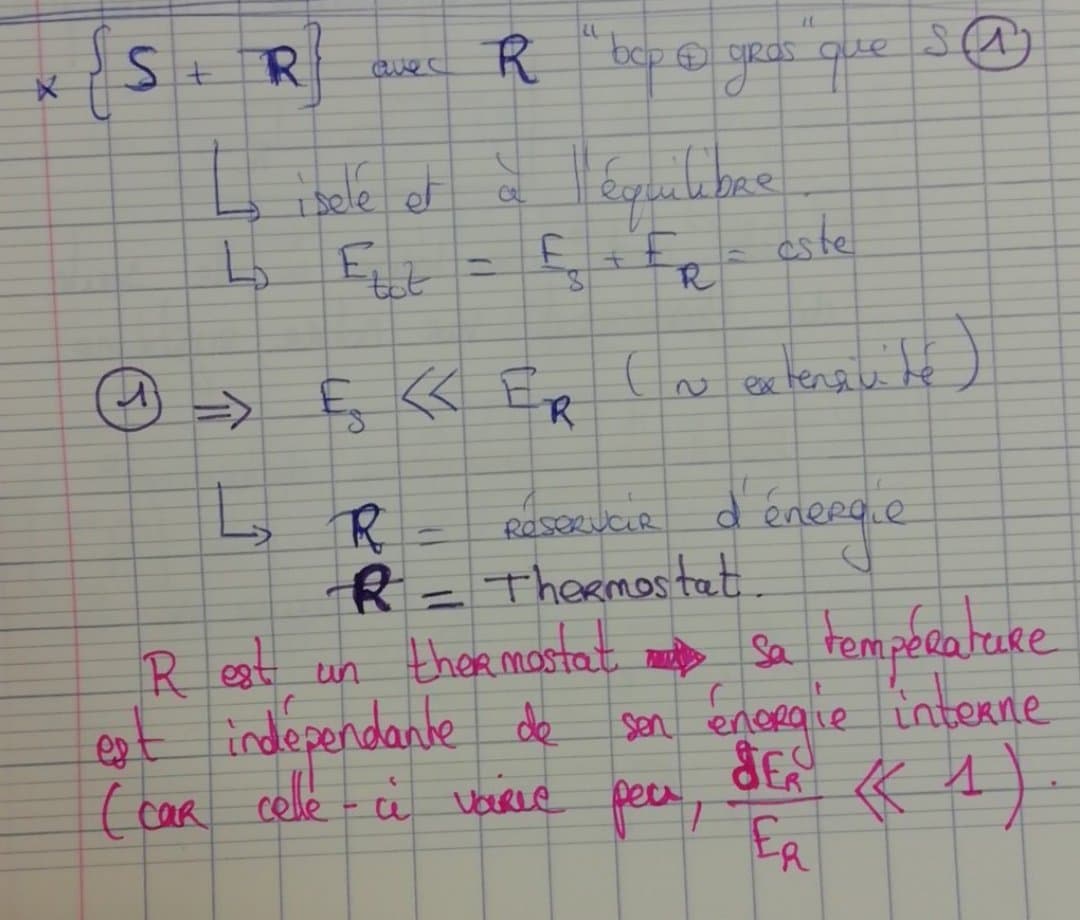 × {S + R} avec R "bcp ⊕ gros" que S ①
↳ isolé et à l'équilibre.
↳ E_tot = E_S + E_R = cste
① ⇒ E_S << E_R (~ extensivité)
↳ R = réservoir d'énergie
R = Thermostat.
R est un thermostat → sa température
est indépendante de son énergie interne
(car celle-ci varie peu, δE_R / E_R << 1).